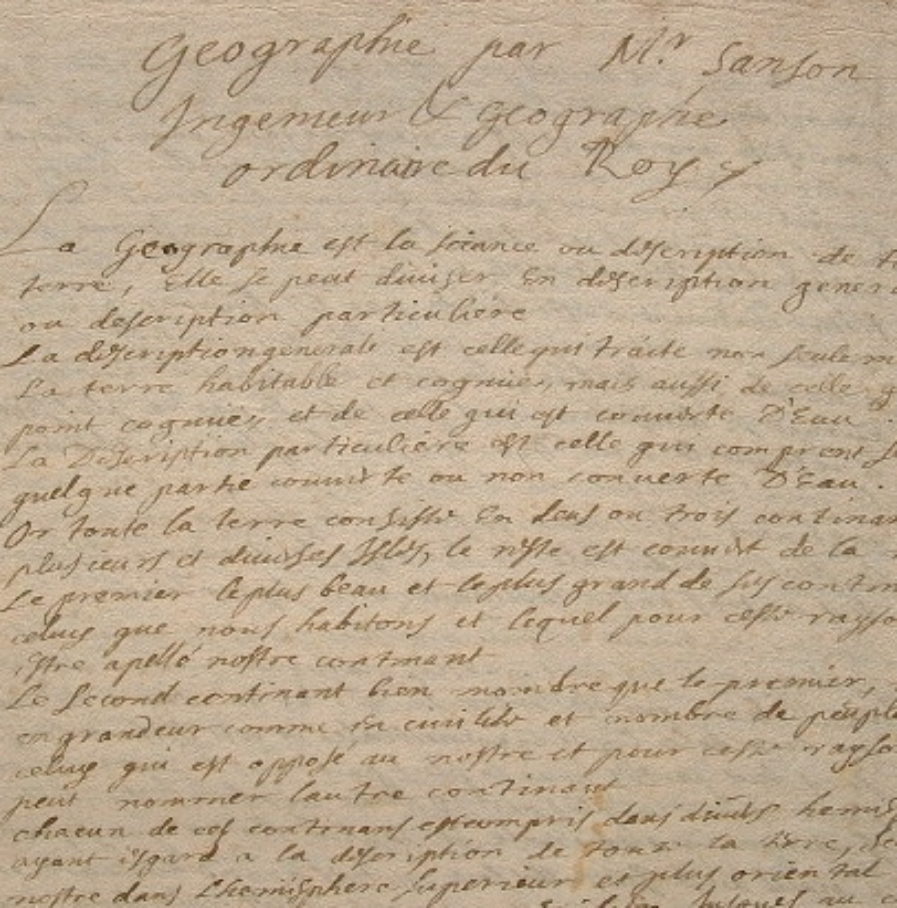 Geographie par Mr. Sanson
Ingenieur & geographe
ordinaire du Roy
La Geographie est la sciance ou description de
terre, Elle se peut diviser En description gener
ou description particuliére
La description generale est celle qui traite non seulem
La terre habitable et cognuës, mais aussi de celle q
point cognuës, et de celle qui est couverte D'Eau.
La Description particuliére est celle qui comprent
quelque partie couverte ou non converte D'Eau.
Or toute la terre consiste En deus ou trois continan
plusieurs et diverses Isles, le reste est couvert de la
Le premier le plus beau et le plus grand de ses contin
celuy que nous habitons et lequel pour ceste rayso
Estre apellé nostre continant
Le second continant bien moindre que le premier,
en grandeur comme En civilité et nombre de peuple
celuy qui est opposé au nostre et pour ceste rayso
peut nommer lautre continant
chacun de ces continans est compris dans divers hemis
ayant esgard a la description de toute la terre,
nostre dans Lhemisphere superieur et plus oriental
jusques au